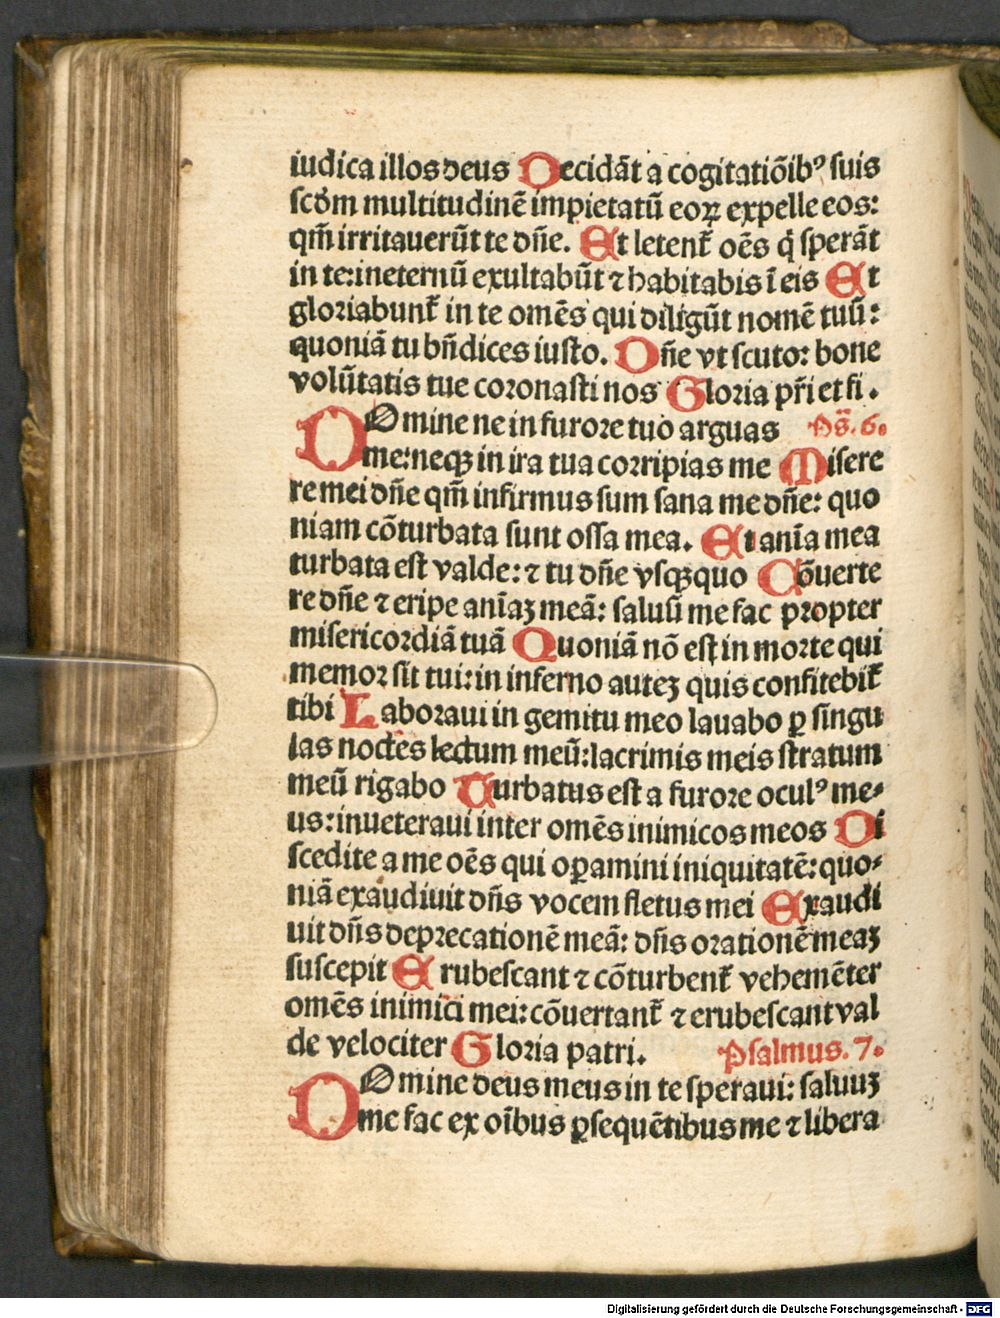 iudica illos deus Decidāt a cogitatiōibꝰ suis
scd̄m multitudinē impietatū eoꝝ expelle eos:
qm̄ irritauerūt te dn̄e. Et letent᷑ oēs q̇ sperāt
in te: ineternū exultabūt ⁊ habitabis ī eis Et
gloriabunt᷑ in te omēs qui diligūt nomē tuū:
quoniā tu bn̄dices iusto. Dn̄e vt scuto: bone
volūtatis tue coronasti nos Gloria pr̄i et fi.
DOmine ne in furore tuo arguas Ps̄. 6.
me: neqꝫ in ira tua corripias me Misere
re mei dn̄e qm̄ infirmus sum sana me dn̄e: quo
niam cōturbata sunt ossa mea. Et anīa mea
turbata est valde: ⁊ tu dn̄e vsqꝫquo Cōuerte
re dn̄e ⁊ eripe anīaꝫ meā: saluū me fac propter
misericordiā tuā Quoniā nō est in morte qui
memor sit tui: in inferno auteꝫ quis confitebit᷑
tibi Laboraui in gemitu meo lauabo ꝑ singu
las noctes lectum meū: lacrimis meis stratum
meū rigabo Turbatus est a furore oculꝰ me⸗
us: inueteraui inter omēs inimicos meos Di
scedite a me oēs qui oꝑamini iniquitatē: quo⸗
niā exaudiuit dn̄s vocem fletus mei Exaudi
uit dn̄s deprecationē meā: dn̄s orationē meaꝫ
suscepit Erubescant ⁊ cōturbent᷑ vehemēter
omēs inimici mei: cōuertant᷑ ⁊ erubescant val
de velociter Gloria patri. Psalmus. 7.
DOmine deus meus in te speraui: saluuꝫ
me fac ex oībus ꝑsequētibus me ⁊ libera
Digitalisierung gefördert durch die Deutsche Forschungsgemeinschaft - DFG